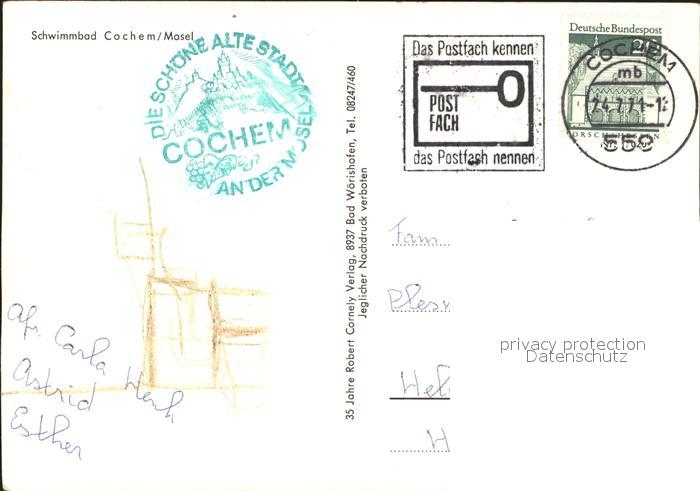 Schwimmbad Cochem/Mosel
DIE SCHÖNE ALTE STADT
COCHEM
AN DER MOSEL
Das Postfach kennen
POST
FACH
das Postfach nennen
Deutsche Bundespost
COCHEM
mb
559
35 Jahre Robert Cornely Verlag, 8937 Bad Wörishofen, Tel. 08247/460
Jeglicher Nachdruck verboten
Fam
privacy protection
Datenschutz
Carla
Astrid
Esther